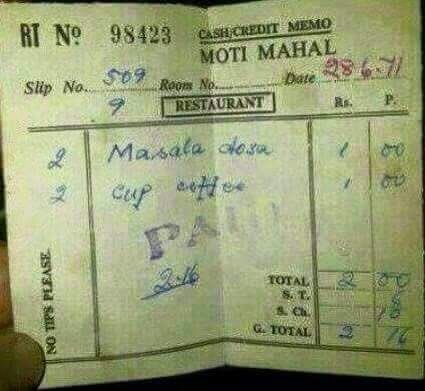 RT Nº 98423 CASH/CREDIT MEMO
MOTI MAHAL
Slip No. 509 Room No. Date 28.6.71
9 RESTAURANT Rs. P.
2 Masala dosa 1 00
2 cup coffee 1 00
PAID
2.16
TOTAL 2 00
S. T. 6
S. Ch. 10
G. TOTAL 2 16
NO TIPS PLEASE.